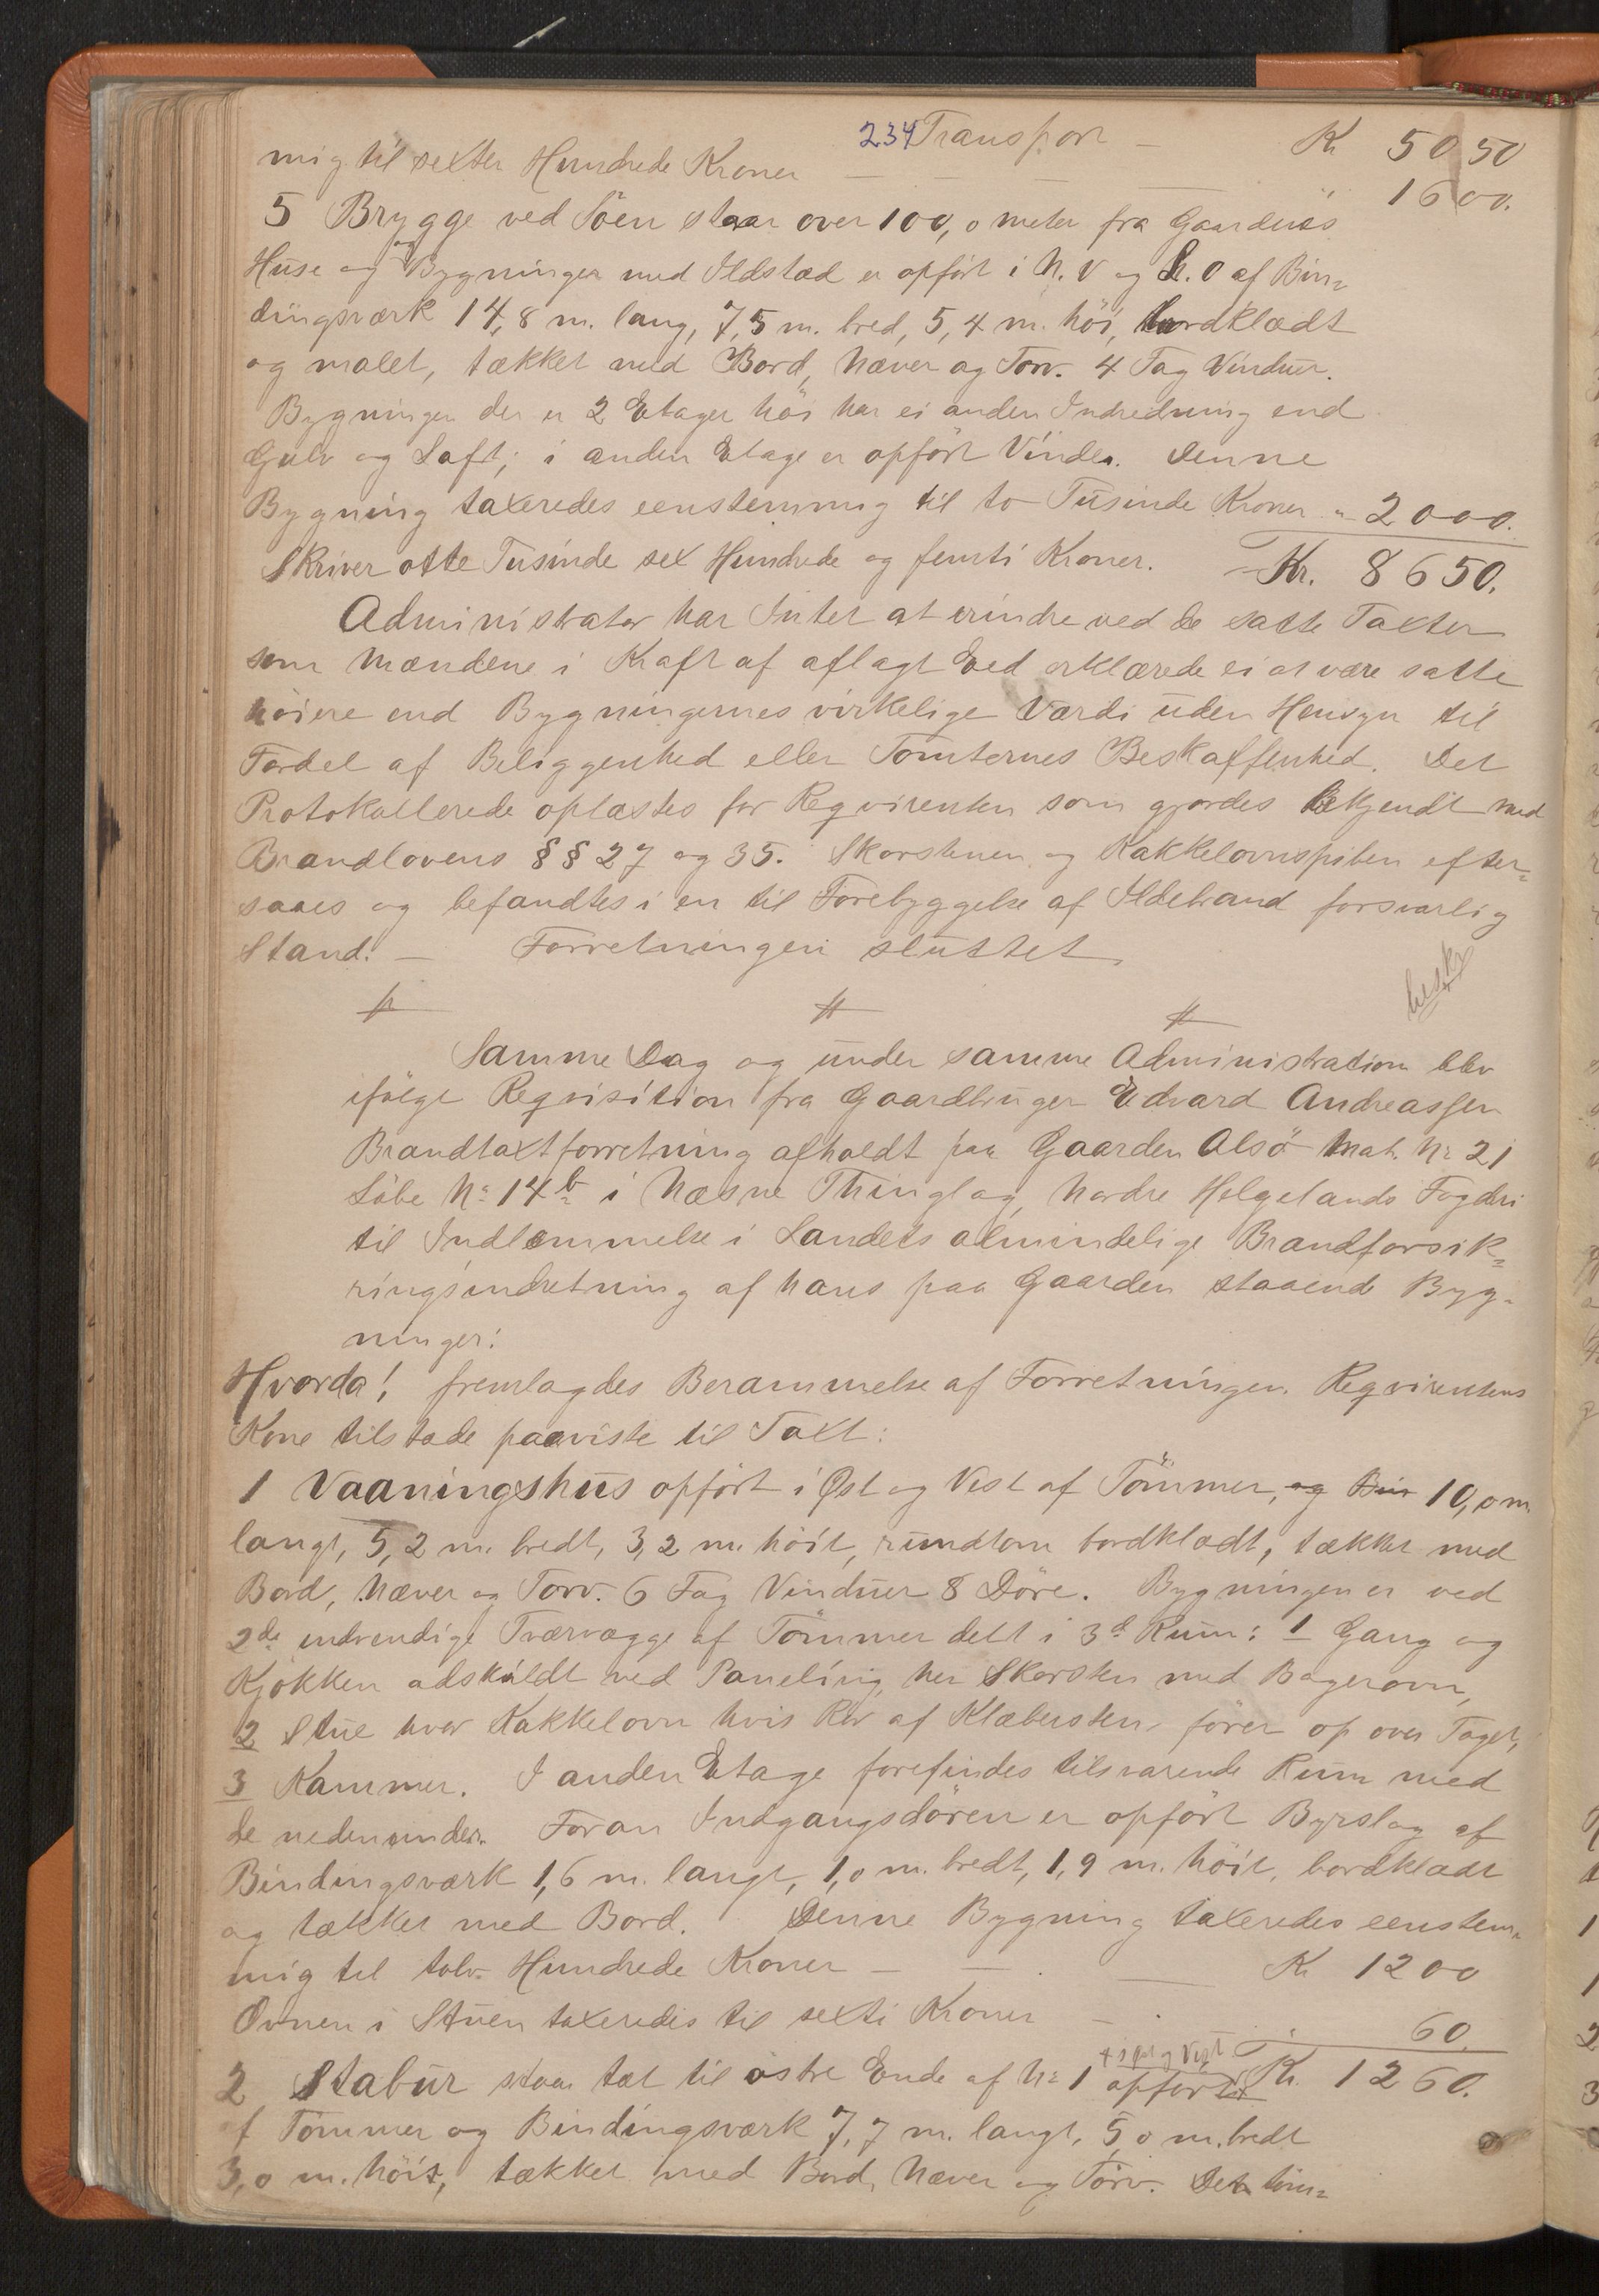 234 Transport — Kr 5050
mig til sexten Hundrede Kroner — — — — " 1600.
5 Brygge ved Söen staar over 100,0 meter fra Gaardens
Huse og Bygninger med Ildsted er opfört i N. V og S. O af Bin=
dingsværk 14,8 m. lang, 7,5 m. bred, 5,4 m. höi, bordklædt
og malet, tækket med Bord, Næver og Torv. 4 Fag Vinduer.
Bygningen der er 2 Etager höi har ei anden Indredning end
Gulv og Loft; i anden Etage er opfört Vinde. Denne
Bygning taxeredes eenstemmig til to Tusinde Kroner " 2000.
Skriver otte Tusinde sex Hundrede og femti Kroner. Kr. 8650.
Administrator har Intet at erindre ved de satte Taxter
som Mændene i Kraft af aflagt Eed erklærede ei at være satte
höiere end Bygningernes virkelige Værdi uden Hensyn til
Fordel af Beliggenhed eller Tomternes Beskaffenhed. Det
Protokollerede oplæstes for Reqvirenten som gjordes bekjendt med
Brandlovens §§ 27 og 35. Skorstenen og Kakkelovnspiben efter=
saaes og befandtes i en til Forebyggelse af Ildebrand forsvarlig
Stand. — Forretningen sluttet
beskr
Samme Dag og under samme Administration blev
ifölge Reqvisition fra Gaardbruger Edvard Andreassen
Brandtaxtforretning afholdt paa Gaarden Alsö Mat. Nr 21
Löbe Nr 14 b i Næsne Thinglag, Nordre Helgelands Fogderi
til Indlemmelse i Landets almindelige Brandforsik=
ringsindretning af hans paa Gaarden staaende Byg=
ninger:
Hvorda! fremlagdes Berammelse af Forretningen. Reqvirentens
Kone tilstede paaviste til Taxt:
1 Vaaningshus opfört i Øst og Vest af Tömmer, og Bin 10,0 m
langt, 5,2 m. bredt, 3,2 m. höit, rundtom bordklædt, tækket med
Bord, Næver og Torv. 6 Fag Vinduer 8 Döre. Bygningen er ved
2de indvendige Tværvægge af Tömmer delt i 3de Rum: 1 Gang og
Kjökken adskildt ved Paneling, her Skorsten med Bagerovn,
2 Stue hvor Kakkelovn hvis Rör af Klæbersten förer op over Taget,
3 Kammer. I anden Etage forefindes tilsvarende Rum med
de nedenunder. Foran Indgangsdören er opfört Byrslag af
Bindingsværk 1,6 m. langt, 1,0 m. bredt, 1,9 m. höit, bordklædt
og tækket med Bord. Denne Bygning taxeredes eenstem=
mig til tolv Hundrede Kroner — — — Kr 1200
Ovnen i Stuen taxeredes til sexti Kroner — " 60.
+ i Øst og Vest
2 Stabur staar tæt til östre Ende af Nr 1 opfört + Kr. 1260.
af Tömmer og Bindingsværk 7,7 m. langt, 5,0 m. bredt
3,0 m. höit, tækket med Bord, Næver og Torv. Den töm=